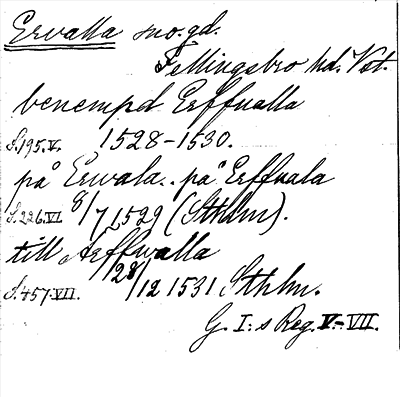 Ervalla sno.gd.
Fellingsbro hd. Vst.
benempd Erffualla
S.195.V. 1528-1530.
på Erwala.. på Erffuala
S.226.VI 8/7 1529 (Sthlm).
till Aerffwalla
S.457.VII. 28/12 1531 Sthlm.
G. I:s Reg. V-VII.